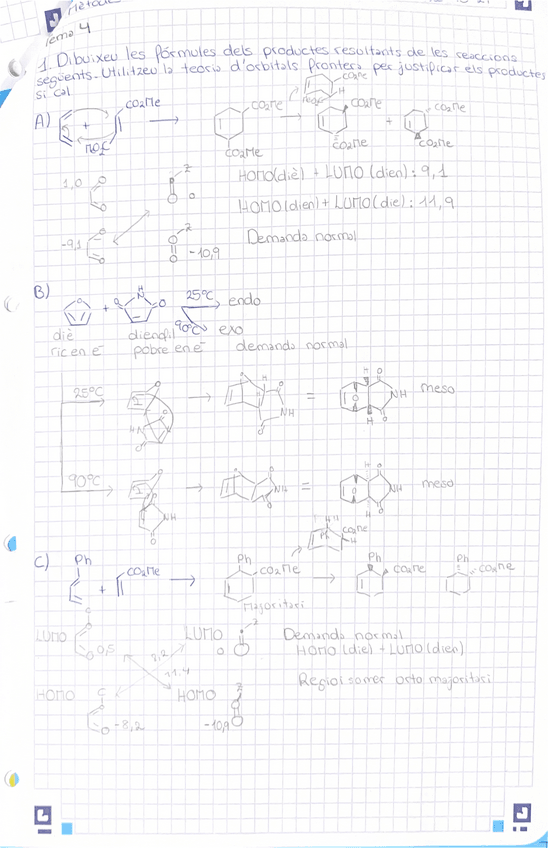 Tema 4
1. Dibuixeu les fórmules dels productes resultants de les reaccions
següents. Utilitzeu la teoria d'orbitals frontera per justificar els productes
si cal
CO2Me
H
A)
CO2Me
+
MeO2C
CO2Me
CO2Me
CO2Me
CO2Me
+
CO2Me
CO2Me
1,0
Z
0
HOMO(diè) + LUMO (dien): 9,1
HOMO(dien) + LUMO(die): 11,9
-9,1
Z
-10,9
Demanda normal
B)
O
+
O
H
N
O
25ºC
endo
90ºC
exo
diè
dienòfil
ric en e-
pobre en e-
demanda normal
25ºC
NH
=
NH
meso
90ºC
NH
NH
=
NH
meso
C)
Ph
+
CO2Me
Ph
CO2Me
Majoritari
H
Ph
CO2Me
H
Ph
CO2Me
Ph
CO2Me
LUMO
C
0,5
LUMO
Z
0
8,2
11,4
Demanda normal
HOMO (die) + LUMO (dien)
HOMO
C
-8,2
HOMO
Z
-10,9
Regioisomer orto majoritari